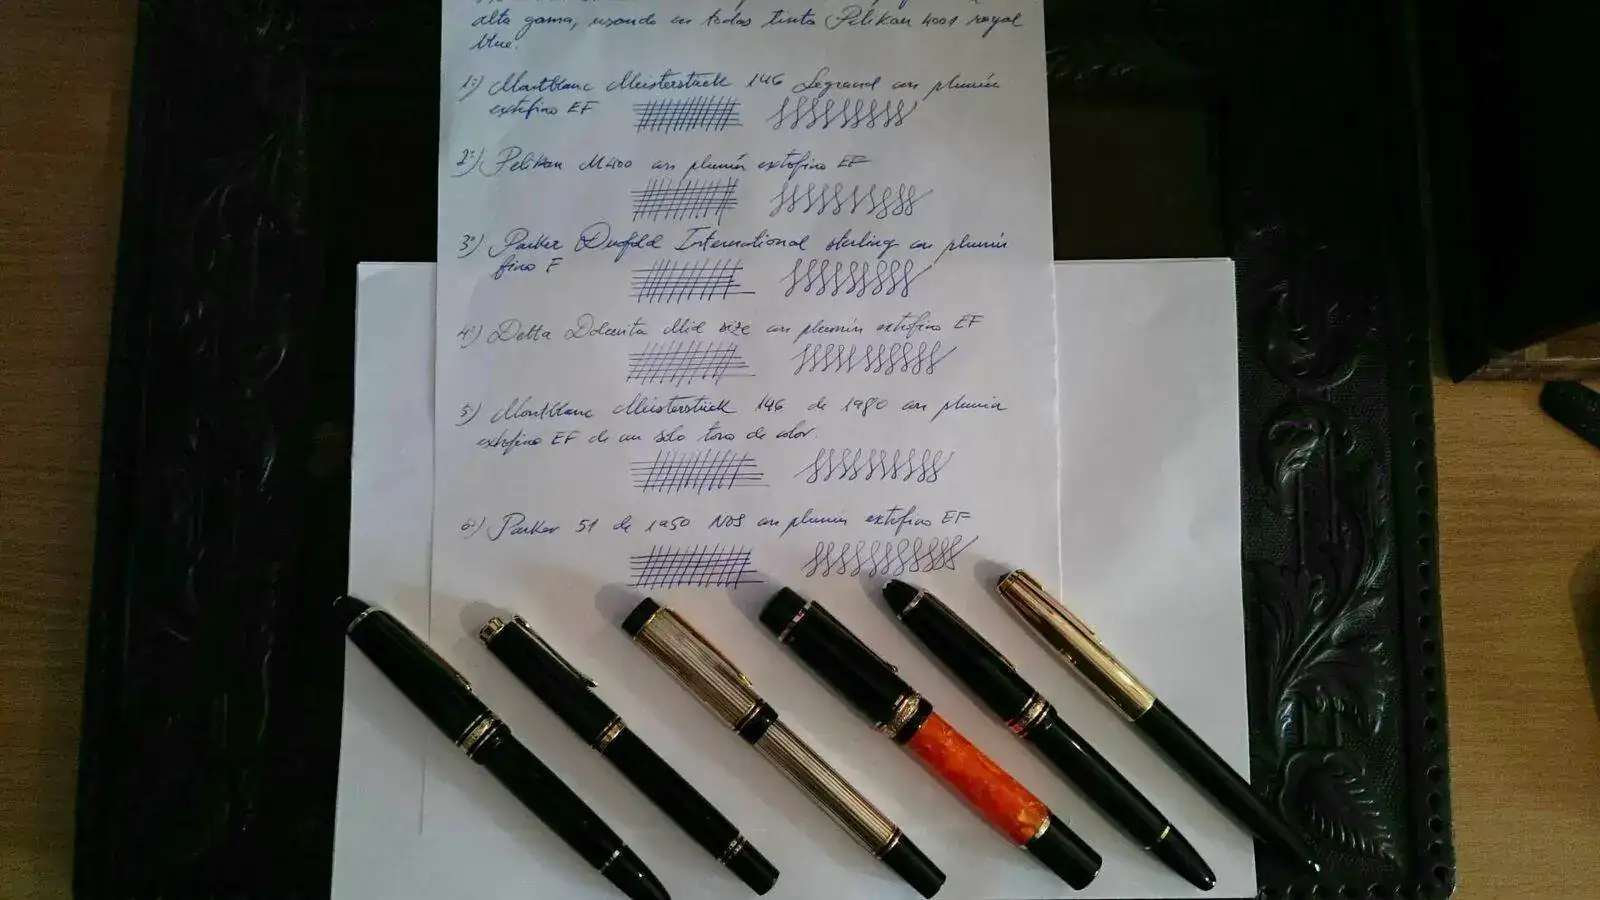 alta gama, usando en todas tinta Pelikan 4001 royal
blue.
1º) Montblanc Meisterstück 146 Legrand con plumín
extrafino EF
2º) Pelikan M400 con plumín extrafino EF
3º) Parker Duofold International sterling con plumín
fino F
4º) Delta Dolcevita Mid size con plumín extrafino EF
5º) Montblanc Meisterstück 146 de 1980 con plumín
extrafino EF de un sólo tono de color.
6º) Parker 51 de 1950 NOS con plumín extrafino EF